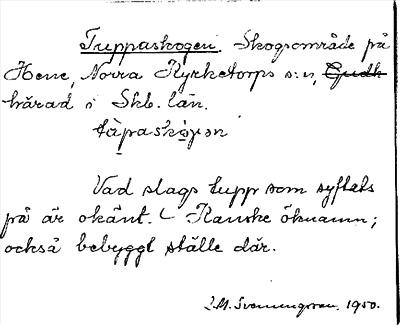 Tuppaskogen. Skogsområde på
Hene, Norra Kyrketorps s:n,
härad i Skb. län.
tùpaskòγən
Vad slags tupp som syftats
på är okänt. – Kanske öknamn;
också bebyggt ställe där.
I.M. Svenningsson. 1950.